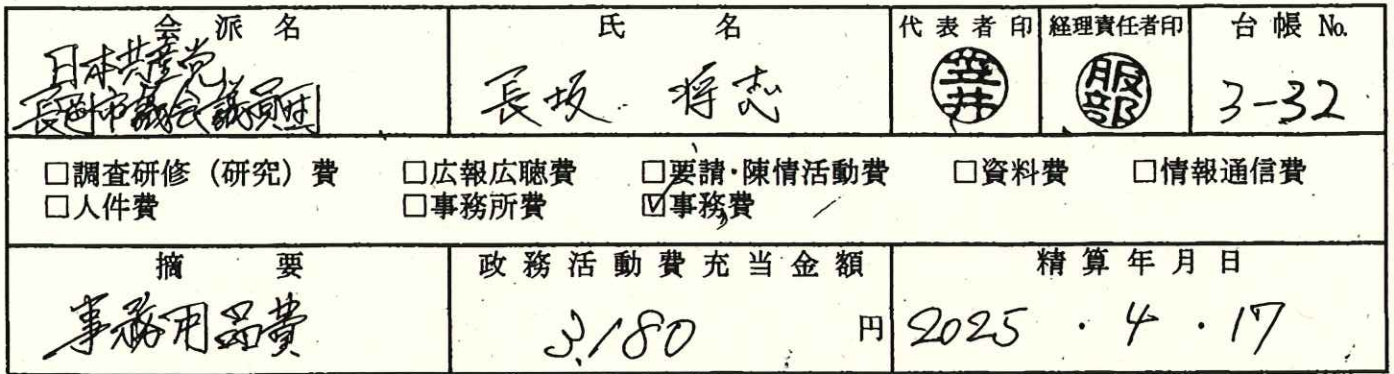 会派名 氏名 代表者印 経理責任者印 台帳No.
日本共産党
長岡市議会議員団 長坂 将志 笠井 服部 3-32
□調査研修(研究)費 □広報広聴費 □要請・陳情活動費 □資料費 □情報通信費
□人件費 □事務所費 ☑事務費
摘要 政務活動費充当金額 精算年月日
事務用品費 3,180 円 2025・4・17